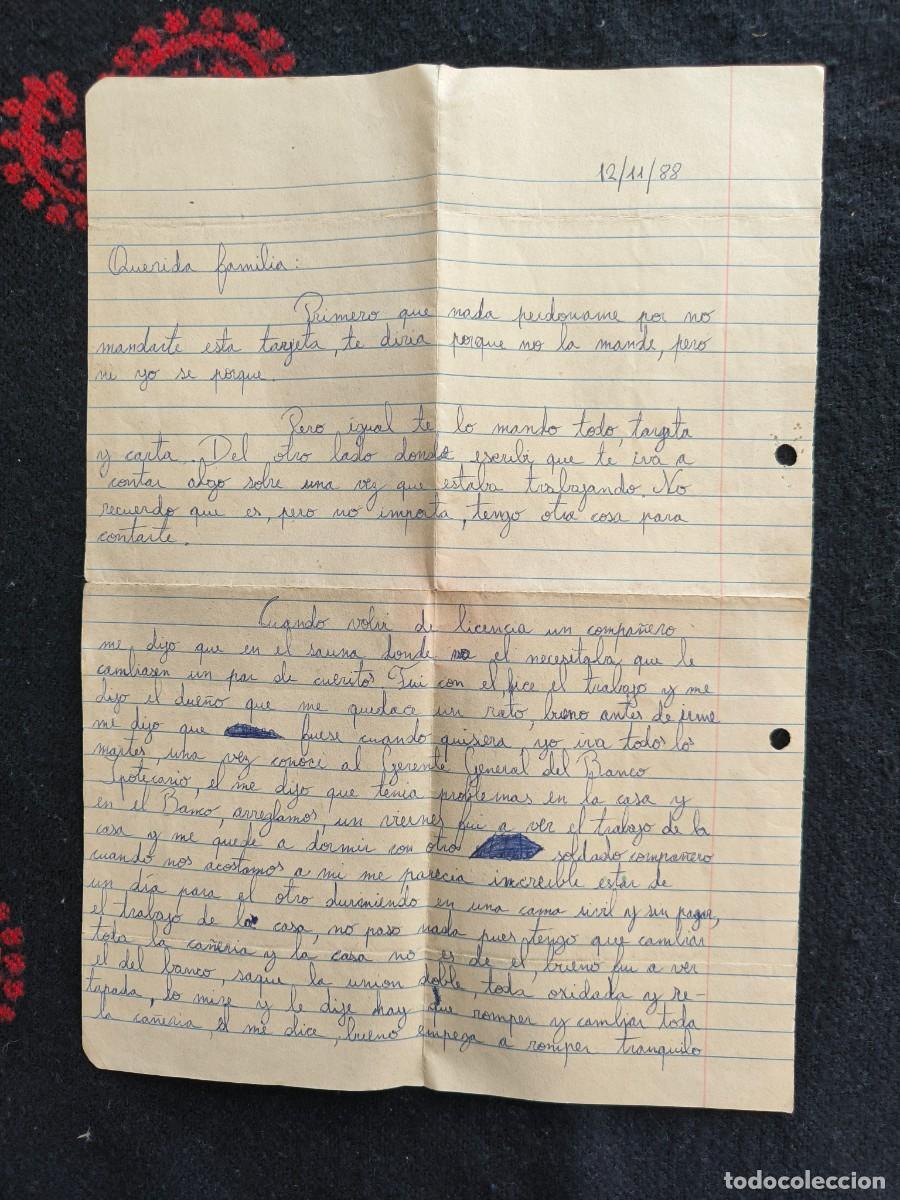 12/11/88
Querida familia:
Primero que nada perdoname por no
mandarte esta targeta, te diria porque no la mande, pero
ni yo se porque.
Pero igual te lo mando todo, targeta
y carta. Del otro lado donde escribi, que te iva a
contar algo sobre una vez que estaba trabajando. No
recuerdo que es, pero no importa, tengo otra cosa para
contarte.
Cuando volvi de licencia un compañero
me dijo que en el sauna donde el necesitaba que le
cambiasen un par de cueritos. Fui con el, hice el trabajo y me
dijo el dueño que me quedace un rato, bueno antes de irme
me dijo que fuese cuando quisera yo iva todos los
martes, una vez conoci al Gerente General del Banco
Ipotecario, el me dijo que tenia problemas en la casa y
en el Banco, arreglamos, un viernes fui a ver el trabajo de la
casa y me quede a dormir con otro soldado compañero
cuando nos acostamos a mi me parecia increible estar de
un día para el otro durmiendo en una cama civil y sin pagar,
el trabajo de la casa, no paso nada pues tengo que cambiar
toda la cañeria y la casa no es de el, bueno fui a ver
el del banco, saque la union doble, toda oxidada y re-
tapada, lo mire y le dije hay que romper y cambiar toda
la cañeria, el me dice, bueno empeza a romper tranquilo
todocoleccion